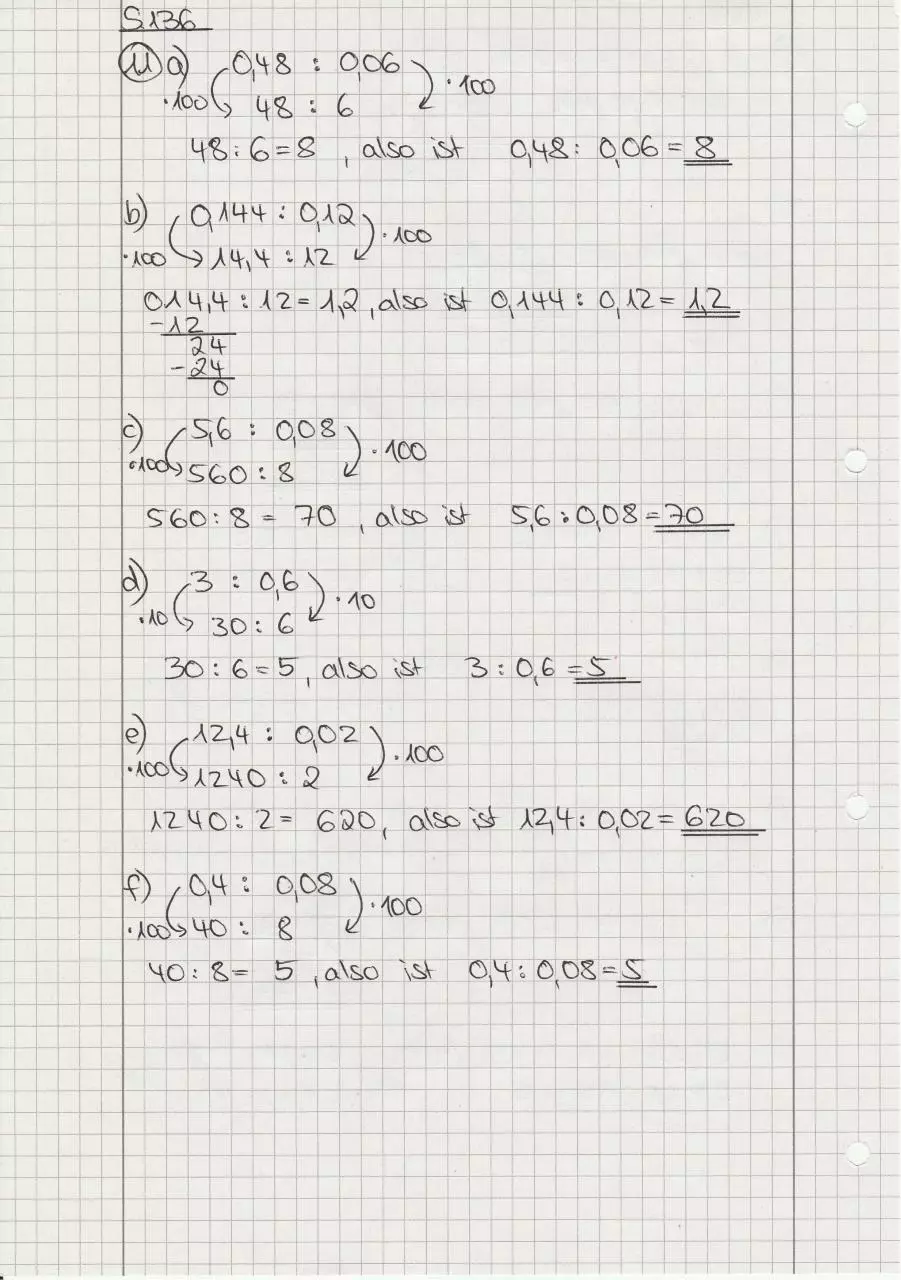 S.136
11 a) 0,48 : 0,06
·100 48 : 6 ·100
48 : 6 = 8 , also ist 0,48 : 0,06 = 8
b) 0,144 : 0,12
·100 14,4 : 12 ·100
014,4 : 12 = 1,2 , also ist 0,144 : 0,12 = 1,2
-12
24
-24
0
c) 5,6 : 0,08
·100 560 : 8 ·100
560 : 8 = 70 , also ist 5,6 : 0,08 = 70
d) 3 : 0,6
·10 30 : 6 ·10
30 : 6 = 5 , also ist 3 : 0,6 = 5
e) 12,4 : 0,02
·100 1240 : 2 ·100
1240 : 2 = 620, also ist 12,4 : 0,02 = 620
f) 0,4 : 0,08
·100 40 : 8 ·100
40 : 8 = 5 , also ist 0,4 : 0,08 = 5